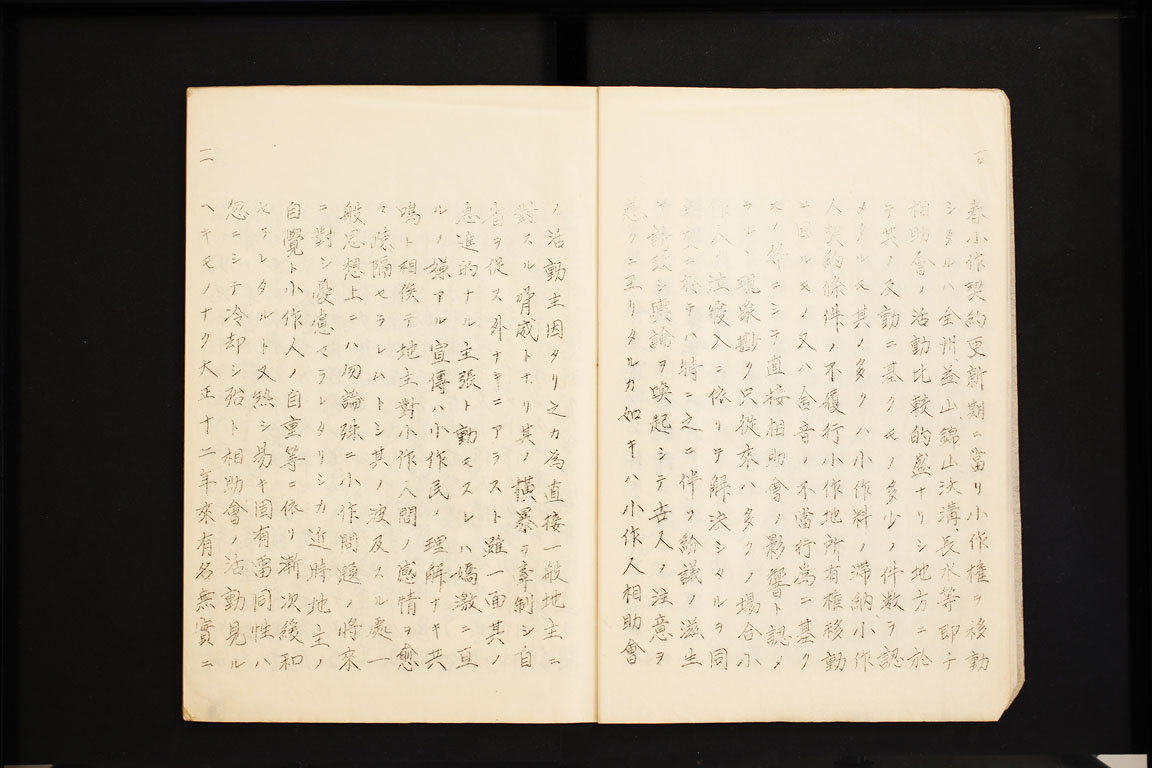 春小作契約更新期ニ當リ小作權ヲ移動
シタルハ全州益山錦山沃溝長水等即チ
相助會ノ活動比較的盛ナリシ地方ニ於
テ其ノ反動ニ基クモノ多少ノ件数ヲ認
メタルモ其ノ多クハ小作料ノ滞納小作
人契約條件ノ不履行小作地所有權移動
ニ因ルモノ又ハ舎音ノ不當行為ニ基ク
モノ等ニシテ直接相助會ノ影響ト認メ
ラルヽ現象尠ク只從來ハ多クノ場合小
作人ノ泣寝入ニ依リテ解決シタルヲ同
ニ於テハ特ニ之ニ伴フ紛議ノ滋生
シ輿論ヲ喚起シテ吉人ノ注意ヲ
惹クニ至リタルカ如キハ小作人相助會
ノ活動主因タリ之カ為直接一般地主ニ
對スル脅威トナリ其ノ横暴ヲ牽制シ自
省ヲ促ス外ナキニアラスト雖一面其ノ
急進的ナル主張ト動モスレハ矯激ニ亘
ルノ嫌アル宣傳ハ小作民ノ理解ナキ共
鳴ト相俟テ地主對小作人間ノ感情ヲ愈
々疎隔セラレムトシ其ノ波及スル處一
般思想上ニハ勿論殊ニ小作問題ノ將來
ニ對シ憂慮セラレタリシカ近時地主ノ
自覺ト小作人ノ自重等ニ依リ漸次緩和
セラレタルト又熱シ易キ固有雷同性ハ
忽ニシテ冷却シ殆ト相助會ノ活動見ル
ヘキモノナク大正十二年來有名無實ニ
一一